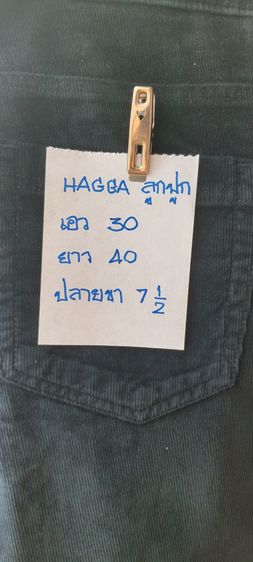 HAGGA ลูกฟูก
เอว 30
ยาว 40
ปลายขา 7 1/2